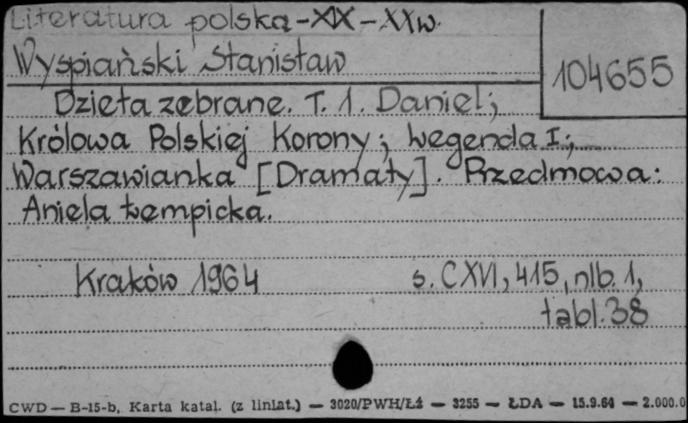 Literatura polska-XIX-XXw.
Wyspiański Stanisław
104655
Dzieła zebrane. T. 1. Daniel;
Królowa Polskiej Korony; Legenda I;
Warszawianka [Dramaty]. Przedmowa:
Aniela Łempicka.
Kraków 1964 s. CXVI, 415, nlb. 1,
tabl. 38
CWD — B-15-b, Karta katal. (z liniat.) — 3020/PWH/Łź — 3255 — ŁDA — 15.9.64 — 2.000.0